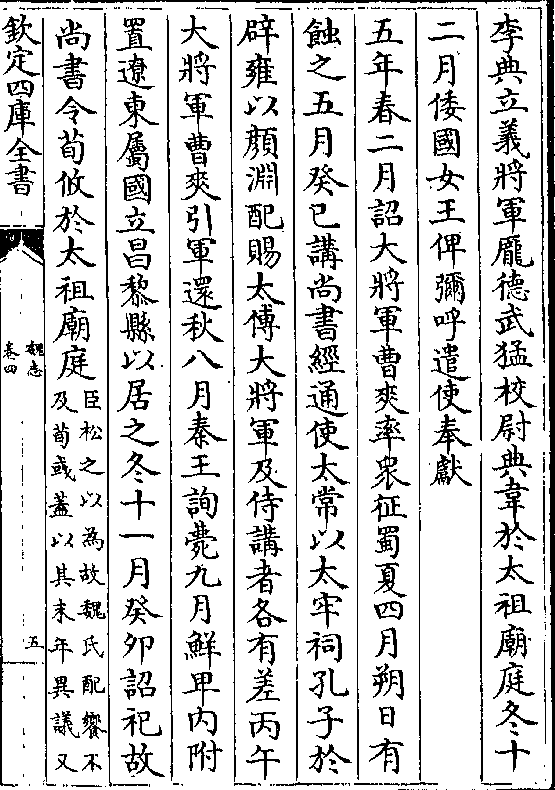 李典立義將軍龎德武猛校尉典韋於太祖廟庭冬十
二月倭國女王俾彌呼遣使奉獻
五年春二月詔大將軍曹爽率衆征蜀夏四月朔日有
蝕之五月癸巳講尚書經通使太常以太牢祠孔子於
辟雍以顏淵配賜太傅大將軍及侍講者各有差丙午
大將軍曹爽引軍還秋八月秦王詢薨九月鮮卑内附
置遼東屬國立昌黎縣以居之冬十一月癸卯詔祀故
尚書令荀攸於太祖廟庭臣松之以為故魏氏配饗不
及荀彧蓋以其末年異議又
欽定四庫全書
魏志
卷四
五